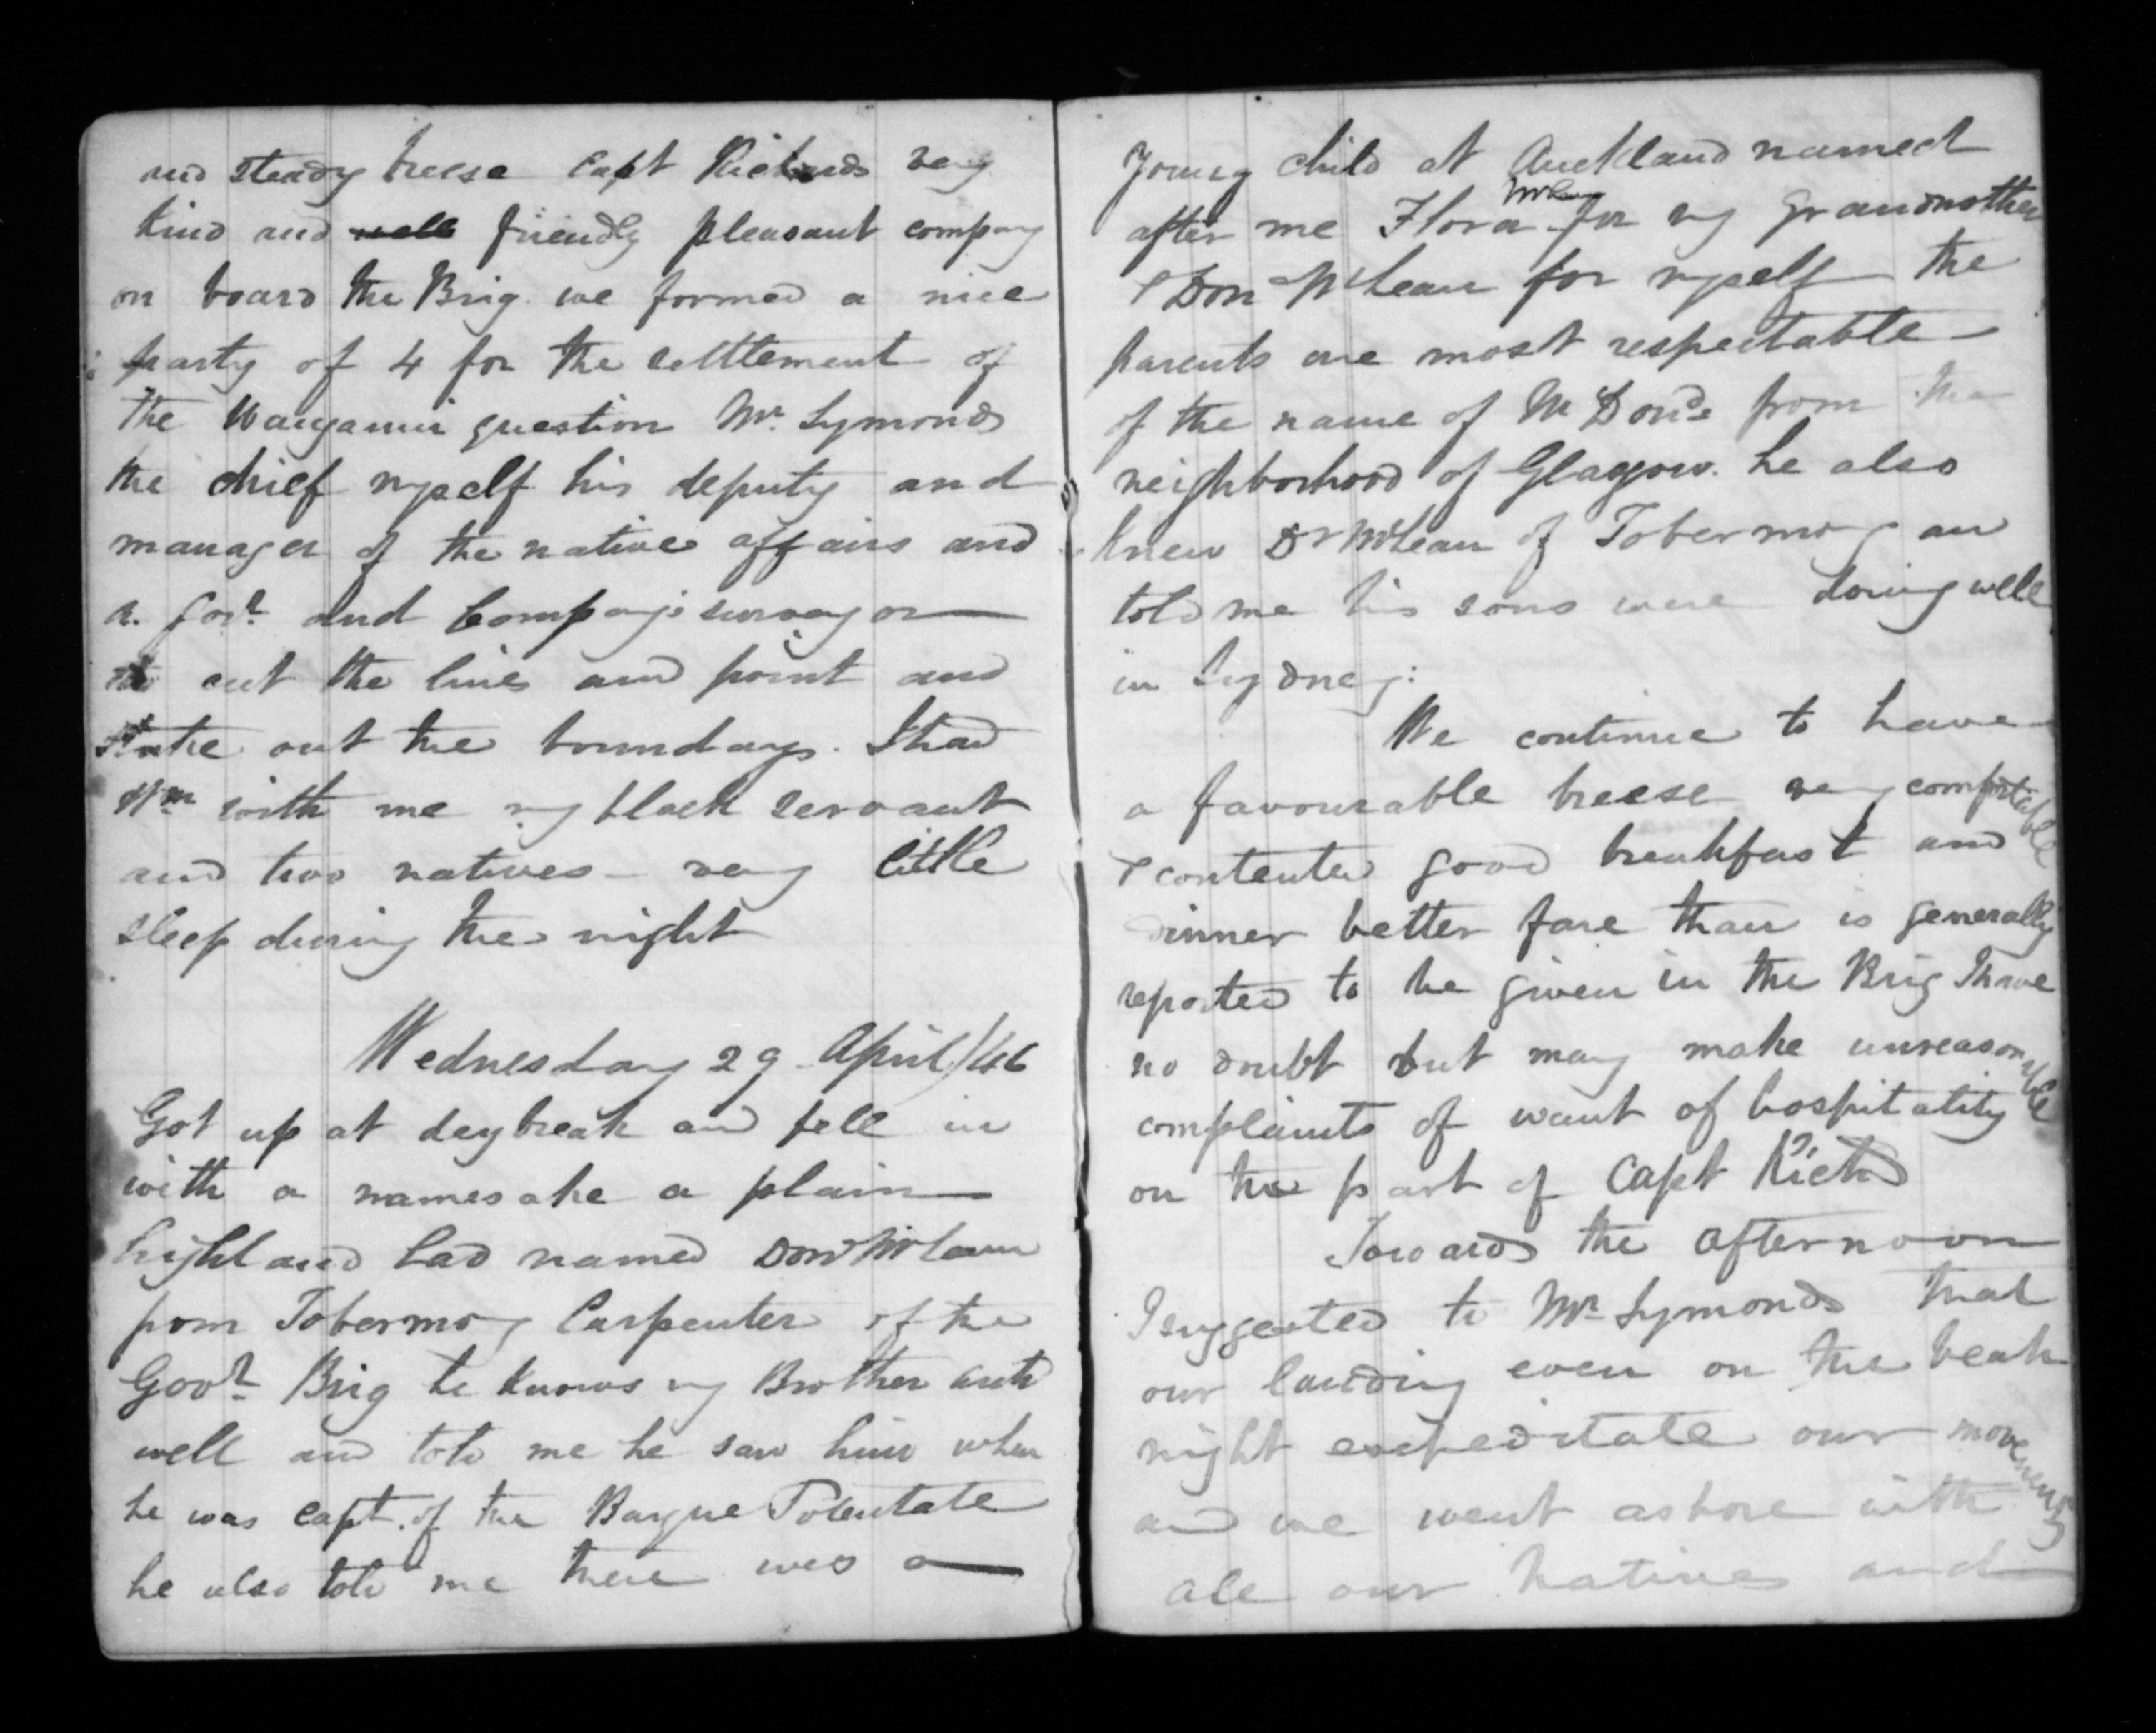 and steady breese Capt Richards very
kind and well friendly pleasant company
on board the Brig. we formed a nice
party of 4 for the settlement of
the Wanganui question Mr. Symonds
the chief myself his deputy and
manager of the native affairs and
a. Govt. and Company's surveyor
to cut the lines and point and
stake out the boundarys. I had
Wm with me my black servant
and two natives - very little
sleep during the night
Wednesday 29 April/46
Got up at daybreak and fell in
with a namesake a plain
highland lad named Dond McLean
from Tobermory Carpenter of the
Govt. Brig he knows my Brother
well and told me he saw him when
he was Capt. of the Barque Potentate
he also told me there was a
young child at Auckland named
after me Flora McLean for my grandmother
& Don McLean for myself the
parents are most respectable
of the name of McDond from the
neighborhood of Glasgow. he also
knew Dr McLean of Tobermory an
told me his sons were doing well
in Sydney:
We continue to have
a favourable breese very comfortable
& contented good breakfast and
dinner better fare than is generally
reported to be given in the Brig I have
no doubt but many make unreasonable
complaints of want of hospitality
on the part of Capt Richds
Towards the afternoon
I suggested to Mr Symonds that
our landing even on the beach
might expeditate our movements
and we went ashore with
all our natives and